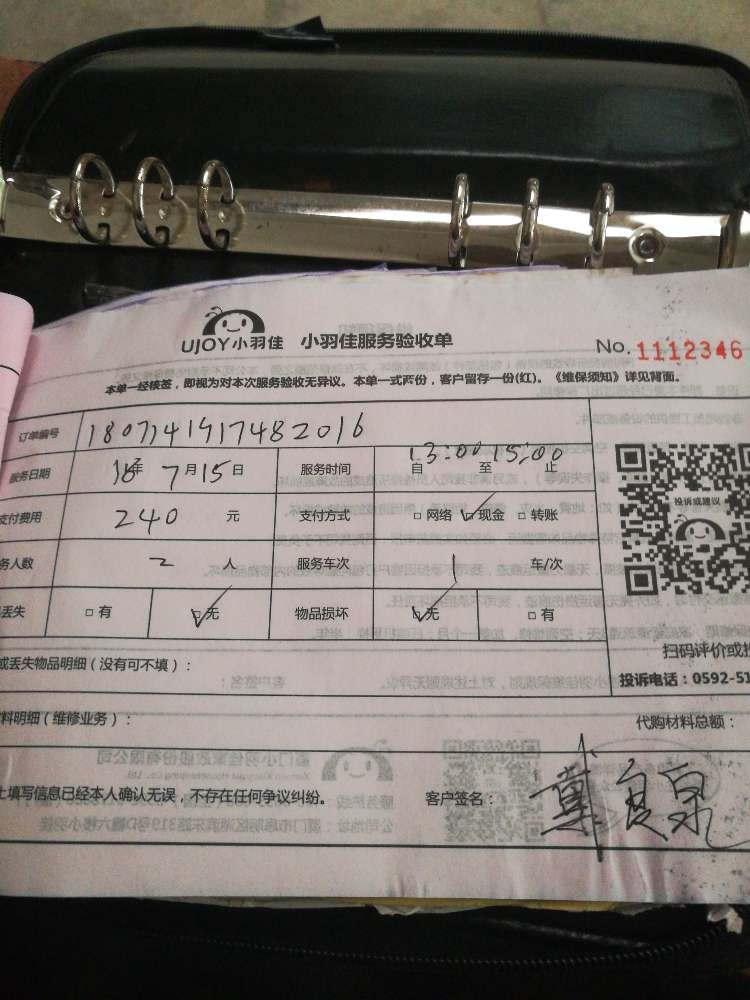 UJOY小羽佳 小羽佳服务验收单 No. 1112346
本单一经核签，即视为对本次服务验收无异议。本单一式两份，客户留存一份(红)。《维保须知》详见背面。
订单编号
服务日期 18年 7月15日 服务时间 13:00 15:00 自 至 止
支付费用 240 元 支付方式 □网络 □现金 □转账
务人数 2 人 服务车次 1 车/次
丢失 □有 □无 物品损坏 □无 □有
投诉或建议
扫码评价或投
或丢失物品明细（没有可不填）：
投诉电话：0592-51
料明细（维修业务）： 代购材料总额：
上填写信息已经本人确认无误，不存在任何争议纠纷。 客户签名：